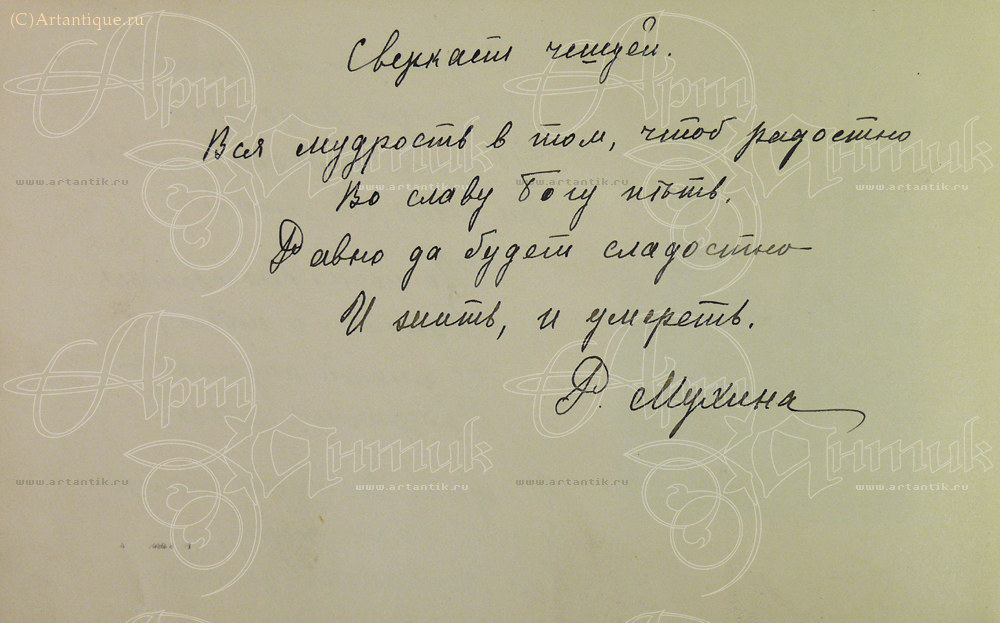 (C)Artantique.ru
Сверкает чешуёй.
Вся мудрость в том, чтоб радостно
Во славу Богу пѣть.
Равно да будет сладостно
И жить, и умереть.
Р. Мухина
Арт Антик
www.artantik.ru www.artantik.ru www.artantik.ru www.artantik.ru
Арт Антик
www.artantik.ru www.artantik.ru www.artantik.ru www.artantik.ru